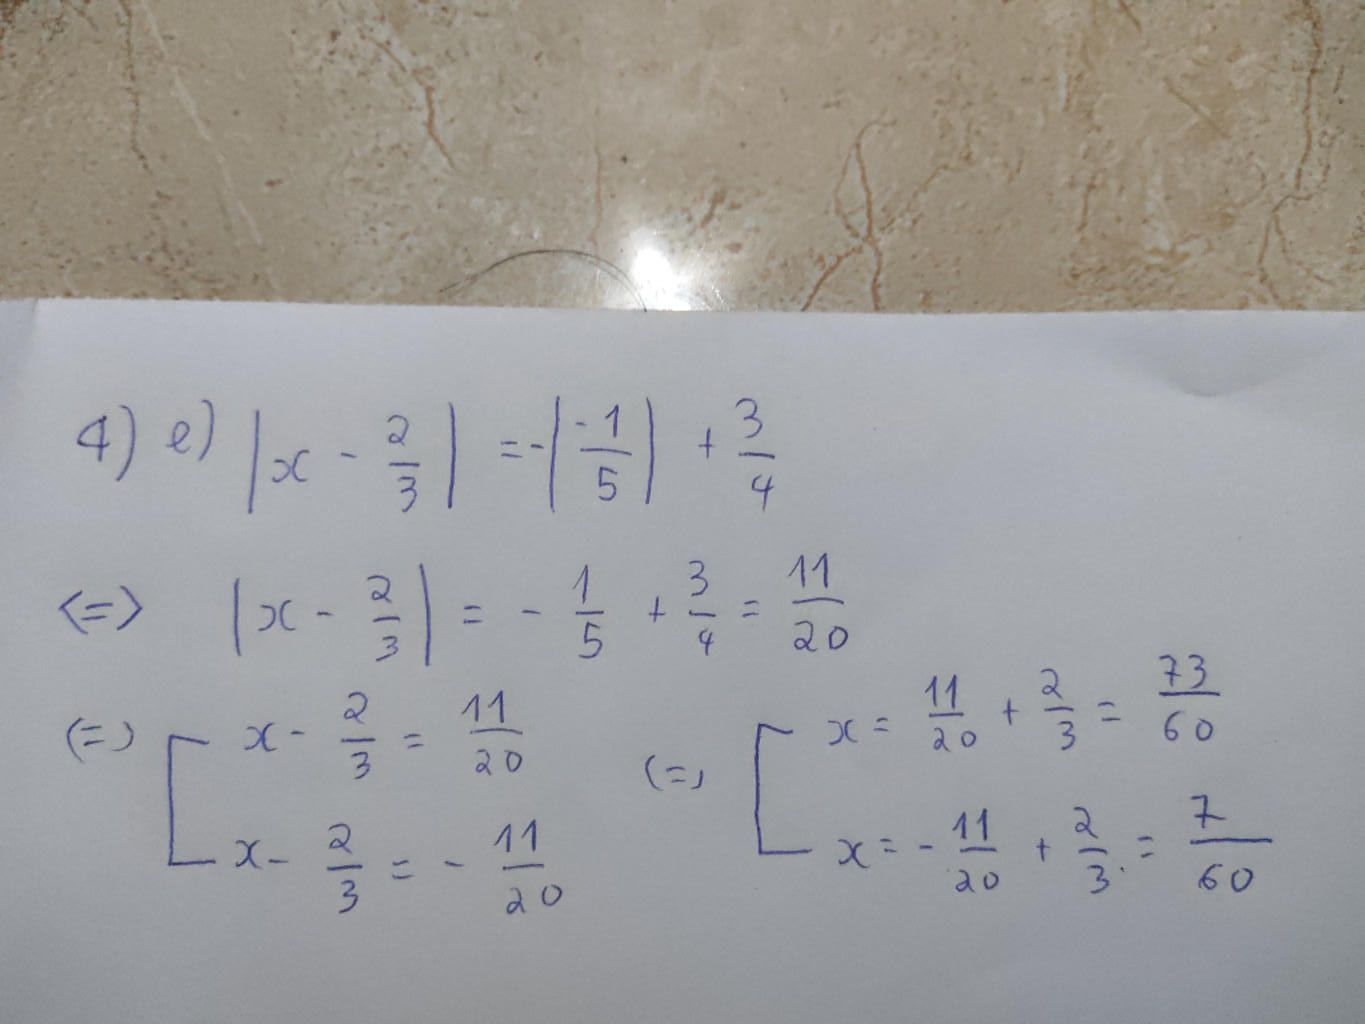 4) e) |x - 2/3| = -|-1/5| + 3/4
<=> |x - 2/3| = - 1/5 + 3/4 = 11/20
(=) [ x - 2/3 = 11/20
x - 2/3 = - 11/20
(=) [ x = 11/20 + 2/3 = 73/60
x = - 11/20 + 2/3 = 7/60